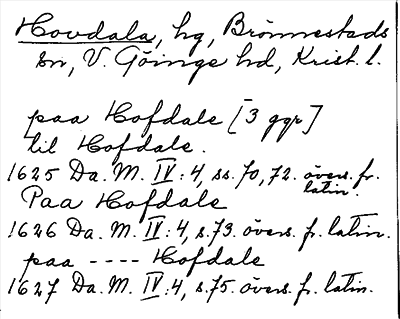 Hovdala, hg, Brönnestads
sn, V. Göinge hd, Krist. l.
paa Hofdale [3 ggr]
til Hofdale.
1625 Da. M. IV:4, ss. 70, 72. övers. fr. latin.
Paa Hofdale
1626 Da. M. IV:4, s. 73. övers. fr. latin.
paa ---- Hofdale
1627 Da. M. IV:4, s. 75. övers. fr. latin.